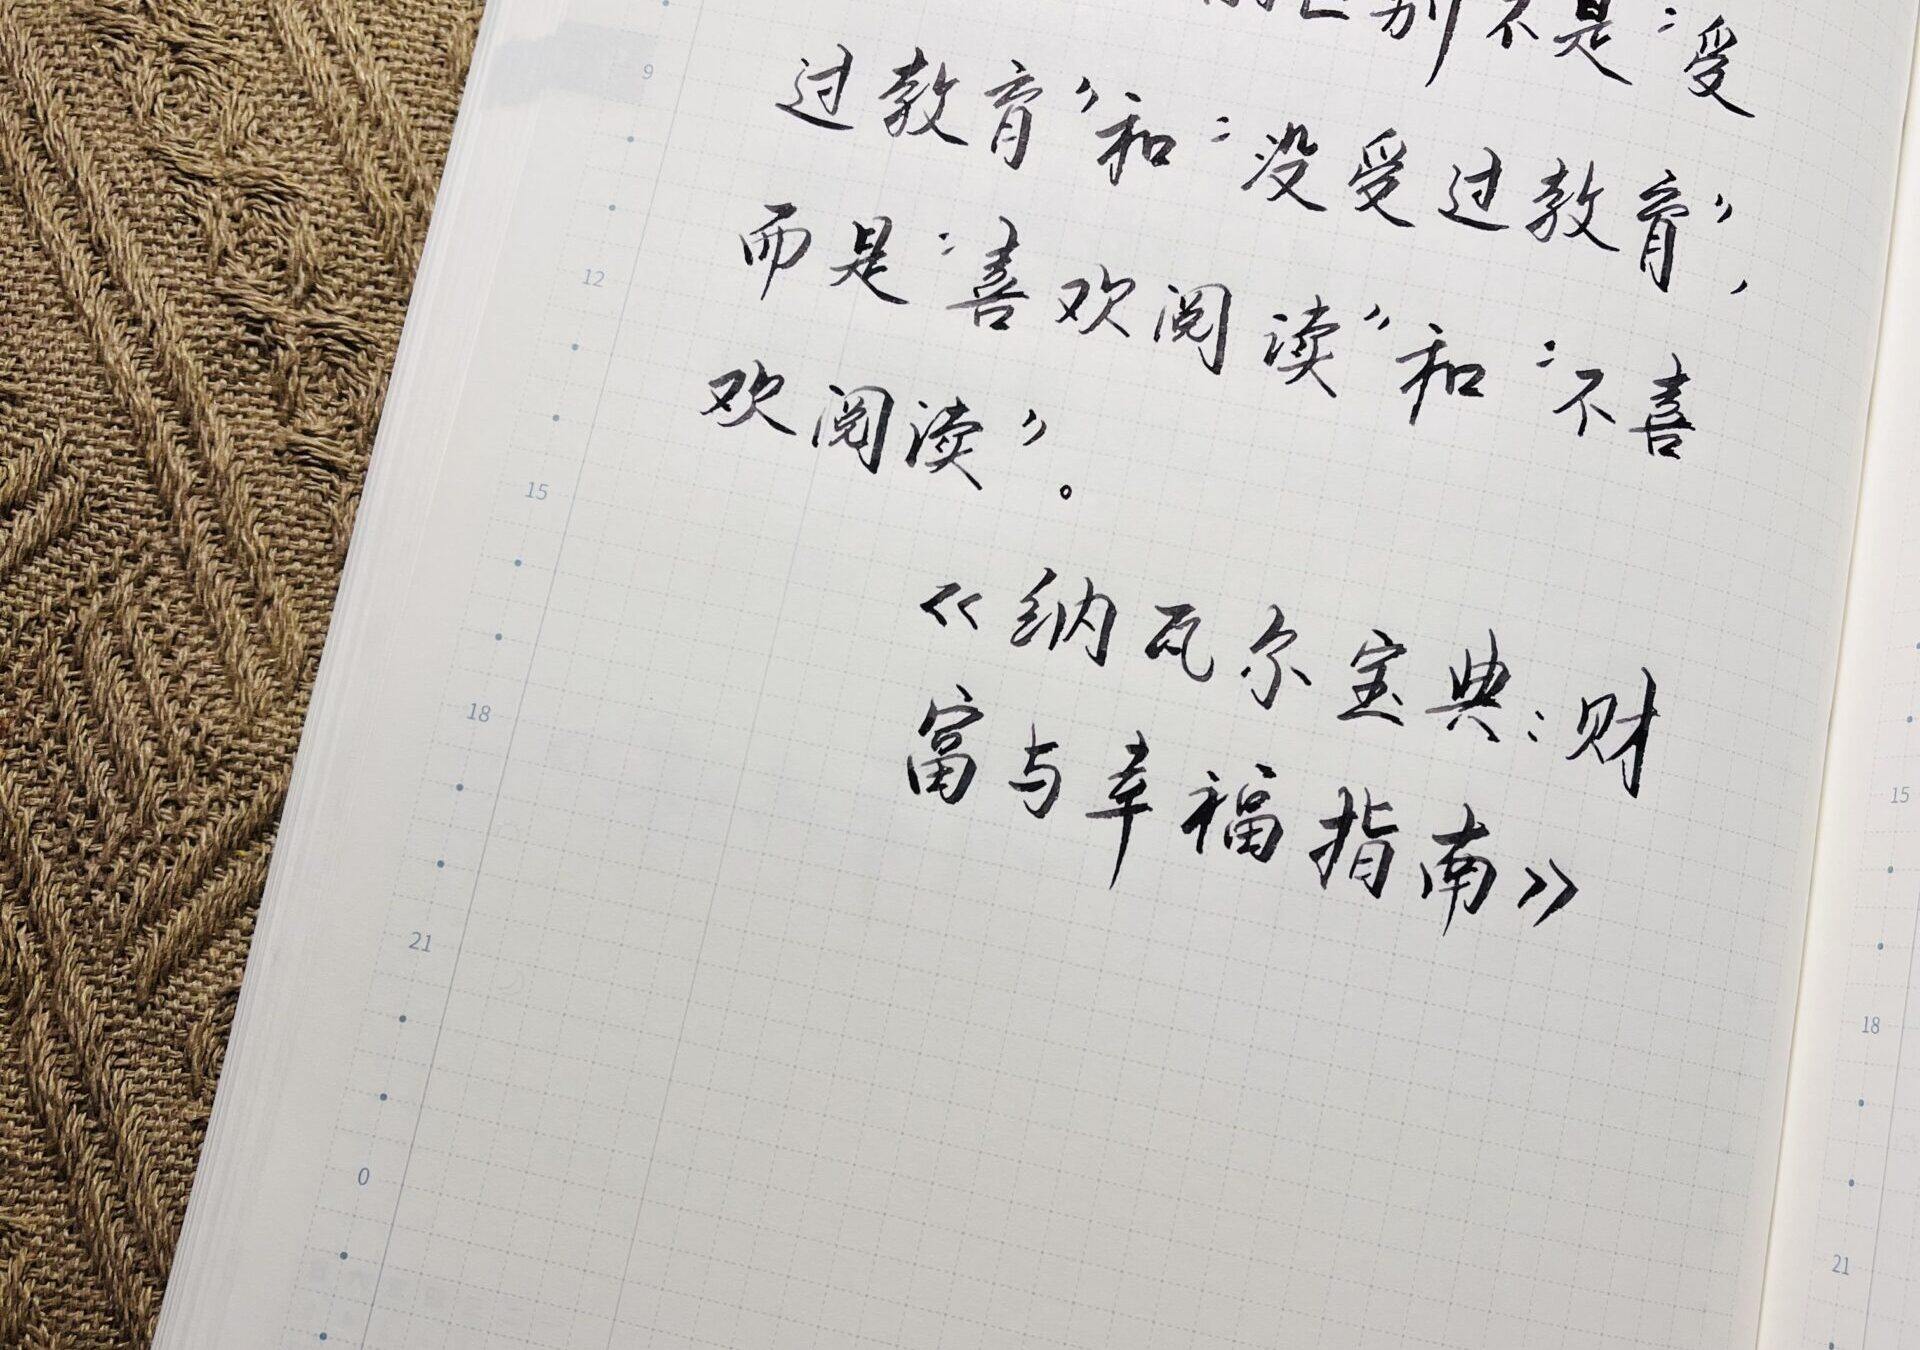 别不是“受
过教育”和“没受过教育”，
而是“喜欢阅读”和“不喜
欢阅读”。
《纳瓦尔宝典：财
富与幸福指南》
9
12
15
18
21
0
15
18
21